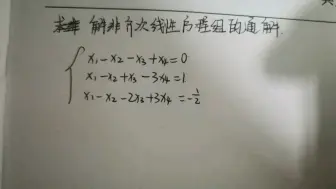 解非齐次线性方程组的通解.
x₁-x₂-x₃+x₄=0
x₁-x₂+x₃-3x₄=1
x₁-x₂-2x₃+3x₄=-1/2